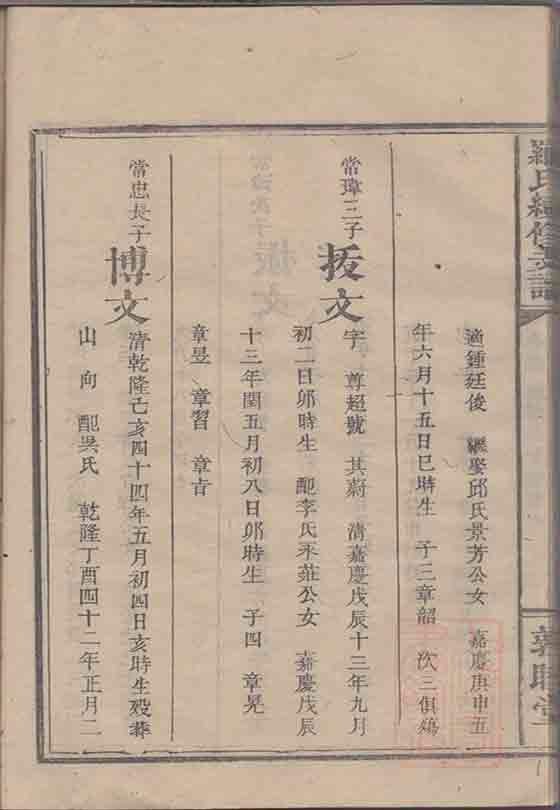 羅氏續修支譜
敦睦堂
適鍾廷俊　繼娶邱氏景芳公女　嘉慶庚申五
年六月十五日巳時生　子三章韶　次三俱殤
常瑋三子　拔文　字　尊超號　其蔚　清嘉慶戊辰十三年九月
初二日卯時生　配李氏永莊公女　嘉慶戊辰
十三年閏五月初八日卯時生　子四　章晃
章昱　章習　章
常忠長子　博文　清乾隆己亥四十四年五月初四日亥時生歿葬
山　向　配吳氏　乾隆丁酉四十二年正月二